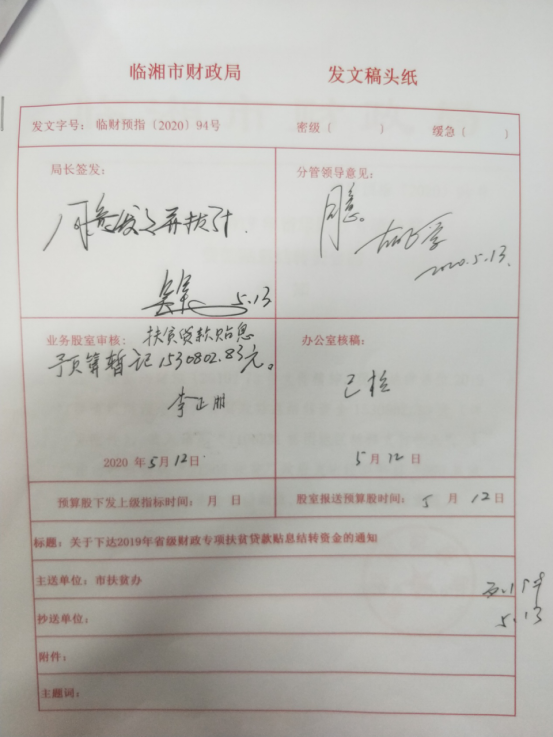 临湘市财政局 发文稿头纸
发文字号：临财预指〔2020〕94号 密级〔 〕 缓急〔 〕
局长签发： 分管领导意见：
同意。
5.13
2020.5.13.
业务股室审核： 扶贫贷款贴息 办公室核稿：
预算暂记1530802.83元。
已核
2020 年5月12日 5月12日
预算股下发上级指标时间： 月 日 股室报送预算股时间： 5 月 12日
标题：关于下达2019年省级财政专项扶贫贷款贴息结转资金的通知
主送单位：市扶贫办
抄送单位：
5.13
附件：
主题词：